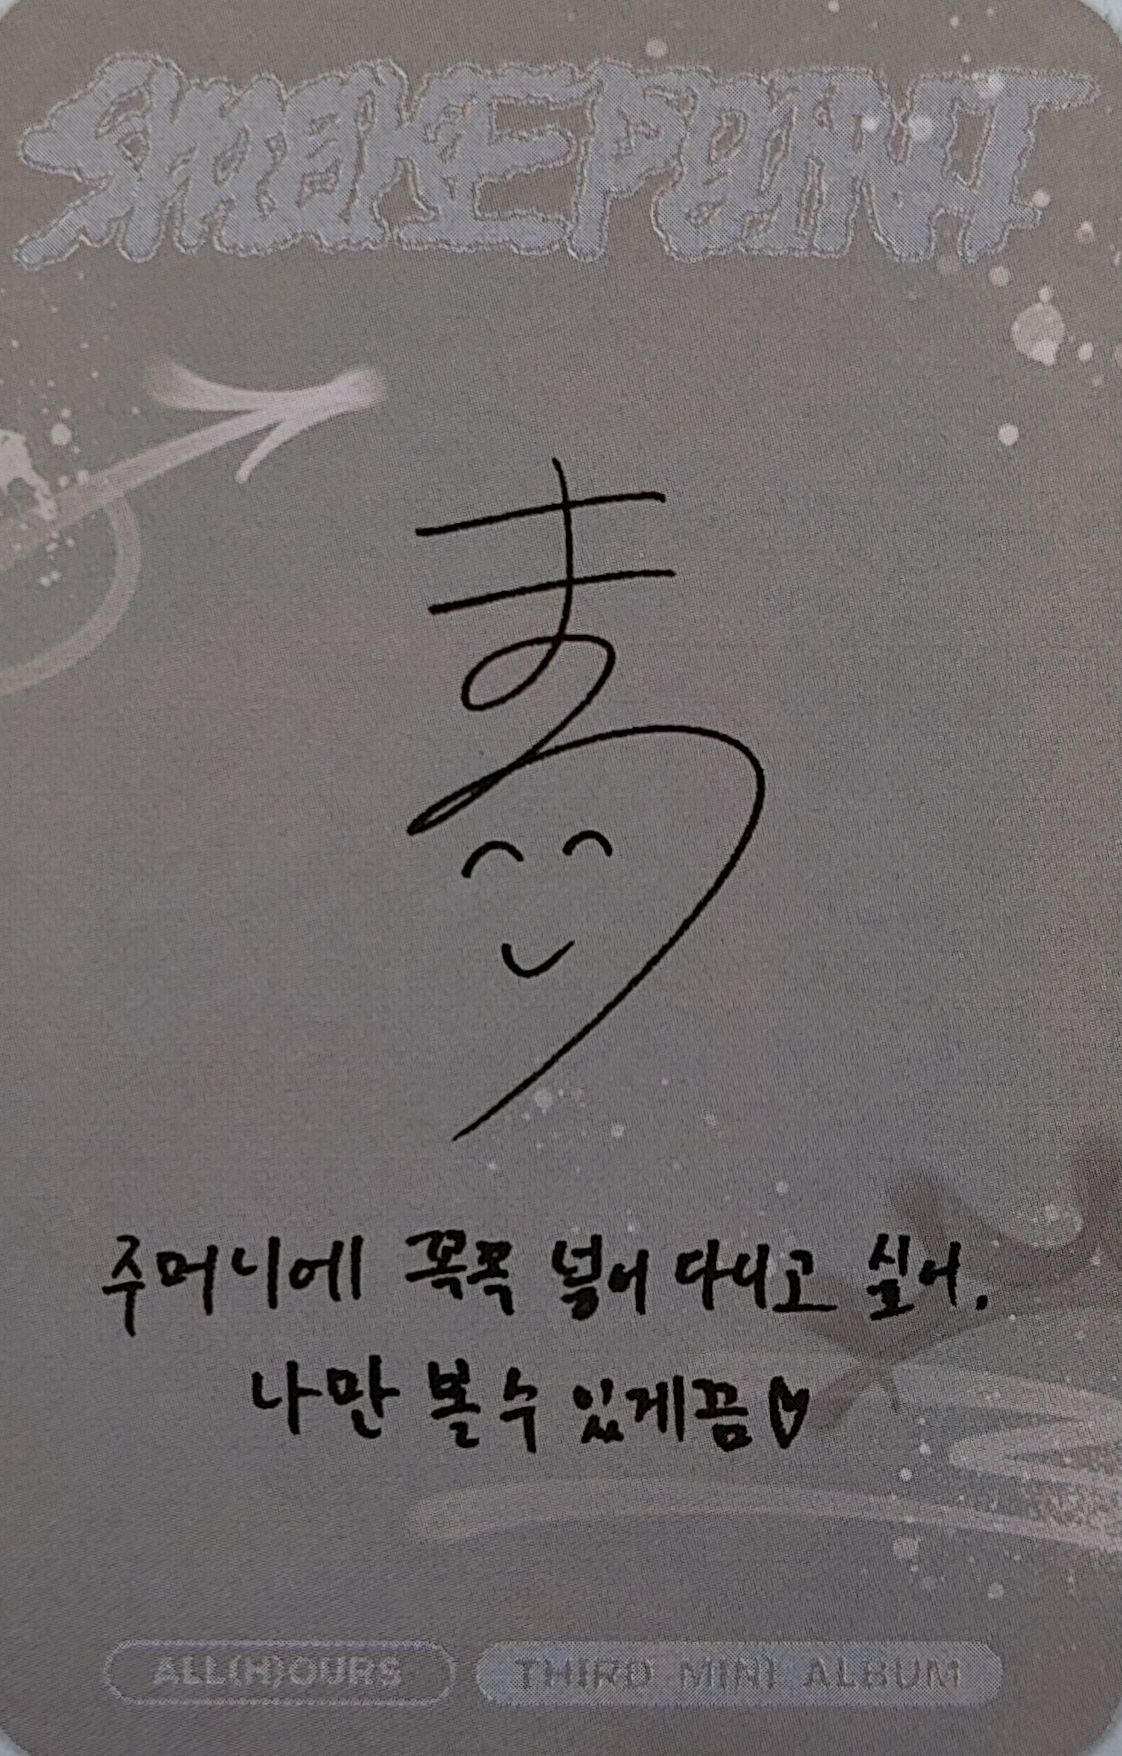 SMOKE POINT
주머니에 꼭꼭 넣어 다니고 싶어.
나만 볼 수 있게끔♡
ALL(H)OURS
THIRD MINI ALBUM